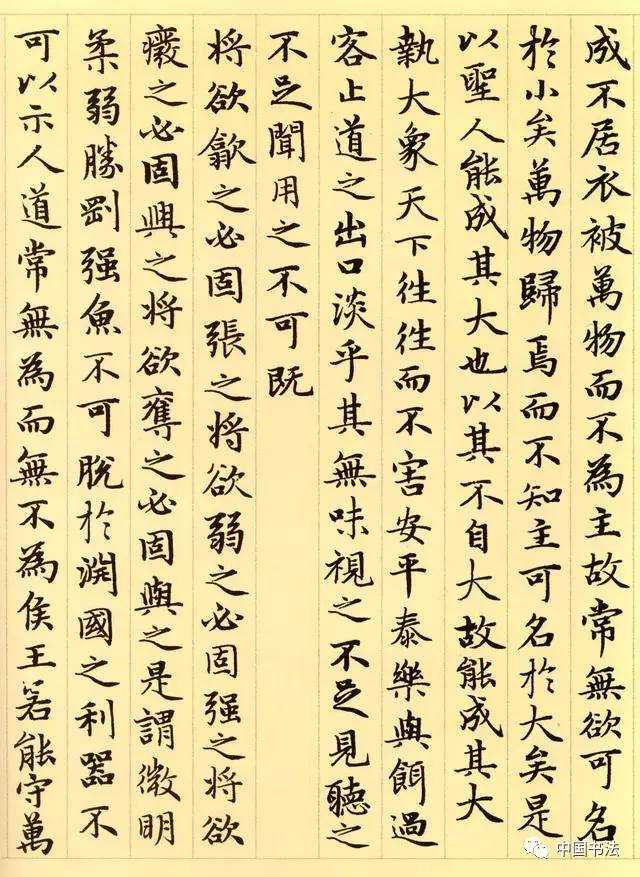 成不居衣被萬物而不為主故常無欲可名
於小矣萬物歸焉而不知主可名於大矣是
以聖人能成其大也以其不自大故能成其大
執大象天下往往而不害安平泰樂與餌過
客止道之出口淡乎其無味視之不足見聽之
不足聞用之不可既
将欲歙之必固張之将欲弱之必固强之将欲
癈之必固興之将欲奪之必固與之是謂微明
柔弱勝剛强魚不可脫於淵國之利器不
可以示人道常無為而無不為侯王若能守萬
中国书法